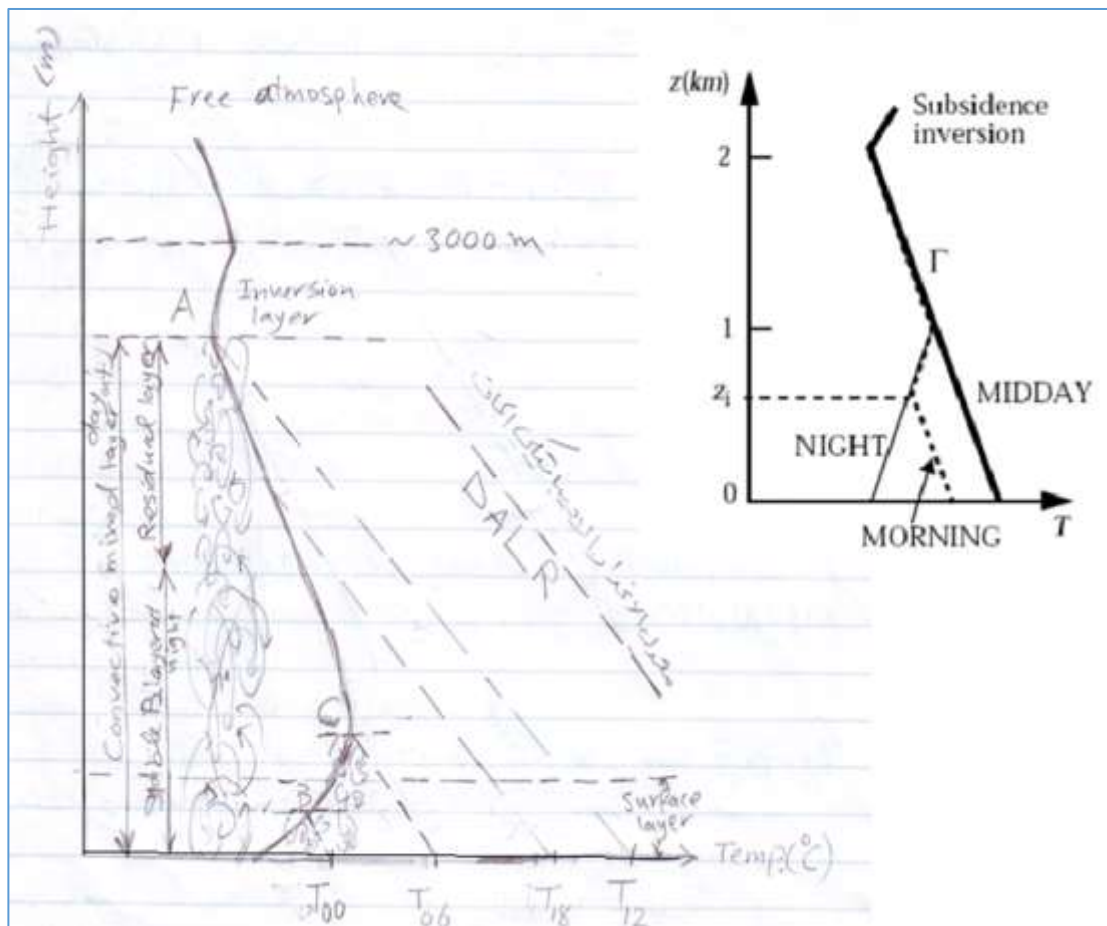 Height (m)
Free atmosphere
~ 3000 m
Inversion
layer
A
Convective mixed layer
day
Residual layer
Stable
night
DALR
B
Surface
layer
Temp.(°C)
T00
T06
T18
T12
z(km)
Subsidence
inversion
2
Γ
1
zi
MIDDAY
NIGHT
0
T
MORNING